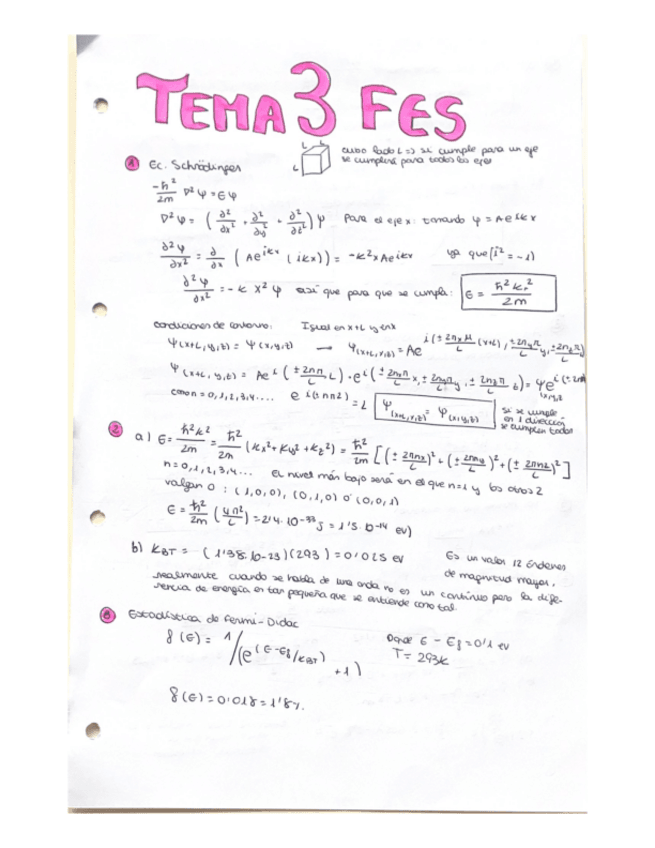 TEMA 3 FES
L L
L
cubo lado L => si cumple para un eje
se cumplirá para todos los ejes
1 Ec. Schrödinger
-ħ²/2m ∇²ψ = Єψ
∇²ψ = (∂²/∂x² + ∂²/∂y² + ∂²/∂z²) ψ Para el eje x: tomando ψ = Ae^ikx
∂²ψ/∂x² = ∂/∂x (Ae^ikx (ikx)) = -k²x Ae^ikx ya que (i² = -1)
∂²ψ/∂x² = -k x²ψ así que para que se cumpla: Є = ħ²k²/2m
condiciones de contorno: Igual en x+L y en x
ψ(x+L,y,z) = ψ(x,y,z) → ψ(x+L,y,z) = Ae^i(±2nxπ/L (x+L), ±2nyπ/L y, ±2nzπ/L z)
ψ(x+L,y,z) = Ae^i(±2nπ/L L) · e^i(±2nxπ/L x, ±2nyπ/L y, ±2nzπ/L z) = ψe^i(±2nπ
(x,y,z)
con n = 0,1,2,3,4.... e^i(±nπ2) = 1 ψ(x+L,y,z) = ψ(x,y,z)
si se cumple
en 1 dirección
se cumplen todas
2 a) Є = ħ²k²/2m = ħ²/2m (kx² + ky² + kz²) = ħ²/2m [(±2πnx/L)² + (±2πny/L)² + (±2πnz/L)²]
n = 0,1,2,3,4... el nivel más bajo será en el que n=1 y los otros 2
valgan 0 : (1,0,0), (0,1,0) ó (0,0,1)
Є = ħ²/2m (4π²/L) = 2'4·10⁻³³ J = 1'5·10⁻¹⁴ eV)
b) KBT = (1'38·10-23)(293) = 0'025 eV
Es un valor 12 órdenes
de magnitud mayor,
realmente cuando se habla de una onda no es un continuo pero la dife-
rencia de energía en tan pequeña que se entiende como tal.
8 Estadística de Fermi-Didac
f(Є) = 1/(e^(Є-Єf/KBT) + 1)
Donde Є - Єf = 0'1 eV
T = 293K
f(Є) = 0'018 = 1'8%.